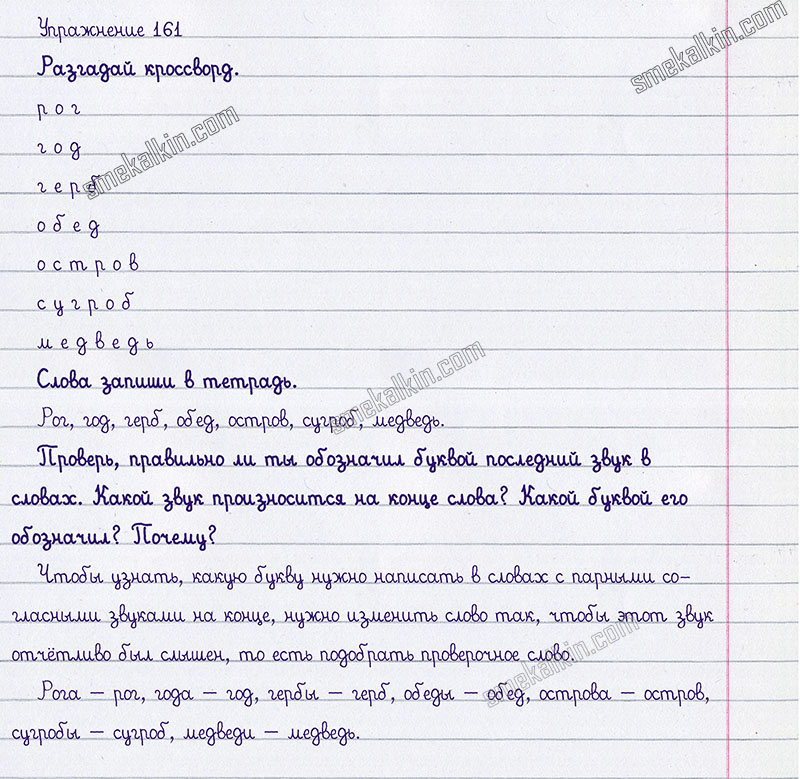 Упражнение 161
smekalkin.com
Разгадай кроссворд.
р о г
smekalkin.com
г о д
г е р б
о б е д
о с т р о в
с у г р о б
м е д в е д ь
Слова запиши в тетрадь.
smekalkin.com
Рог, год, герб, обед, остров, сугроб, медведь.
Проверь, правильно ли ты обозначил буквой последний звук в
словах. Какой звук произносится на конце слова? Какой буквой его
обозначил? Почему?
Чтобы узнать, какую букву нужно написать в словах с парными со-
гласными звуками на конце, нужно изменить слово так, чтобы этот звук
отчётливо был слышен, то есть подобрать проверочное слово.
smekalkin.com
Рога – рог, года – год, гербы – герб, обеды – обед, острова – остров,
сугробы – сугроб, медведи – медведь.